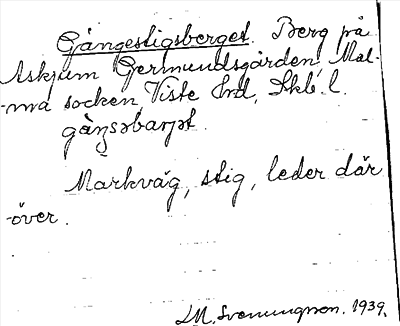 Gångestigsberget. Berg på
Askjum Germundsgården, Mal-
-ma socken, Viste hd, Skb. l.
gåŋsəbarjət.
Markväg, stig, leder där
över.
M. Svenungsson. 1939.